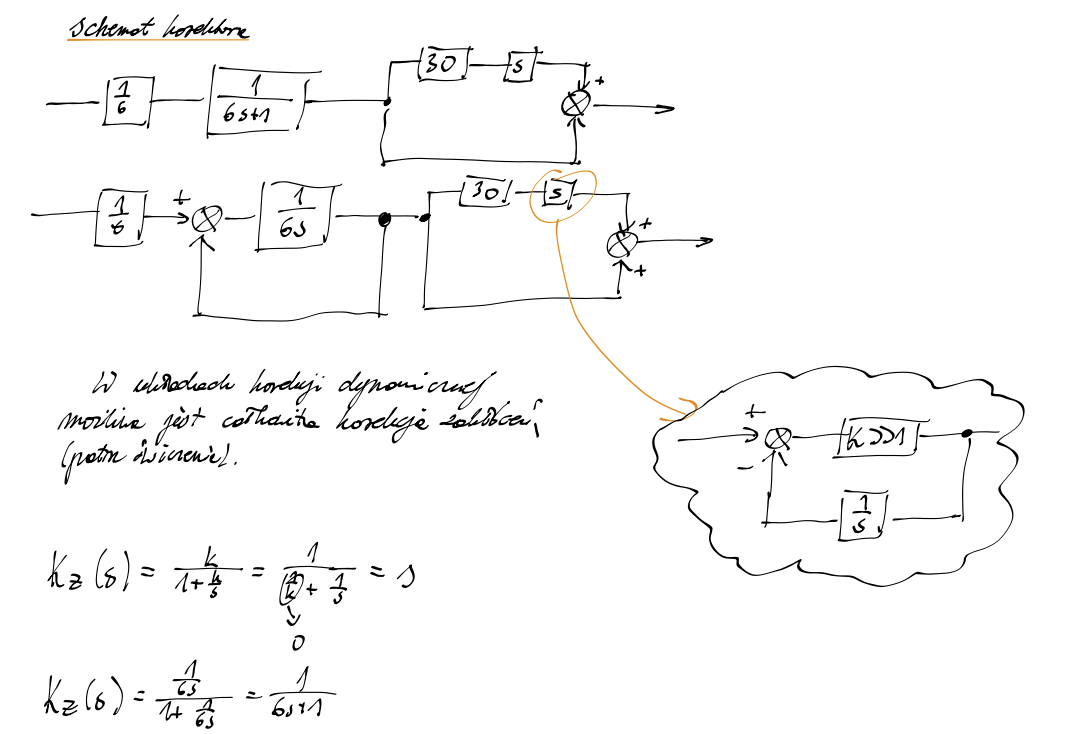 Schemat korektora
1/6 1/(6s+1) 30 s +
1/6 + 1/(6s) 30 s + +
W układach korekcji dynamicznej
możliwa jest całkowita korekcja zakłóceń
(patrz ćwiczenie).
+ − k>>1 1/s
Kz(s) = k/(1+k/s) = 1/(1/k + 1/s) = s
0
Kz(s) = (1/(6s))/(1+1/(6s)) = 1/(6s+1)